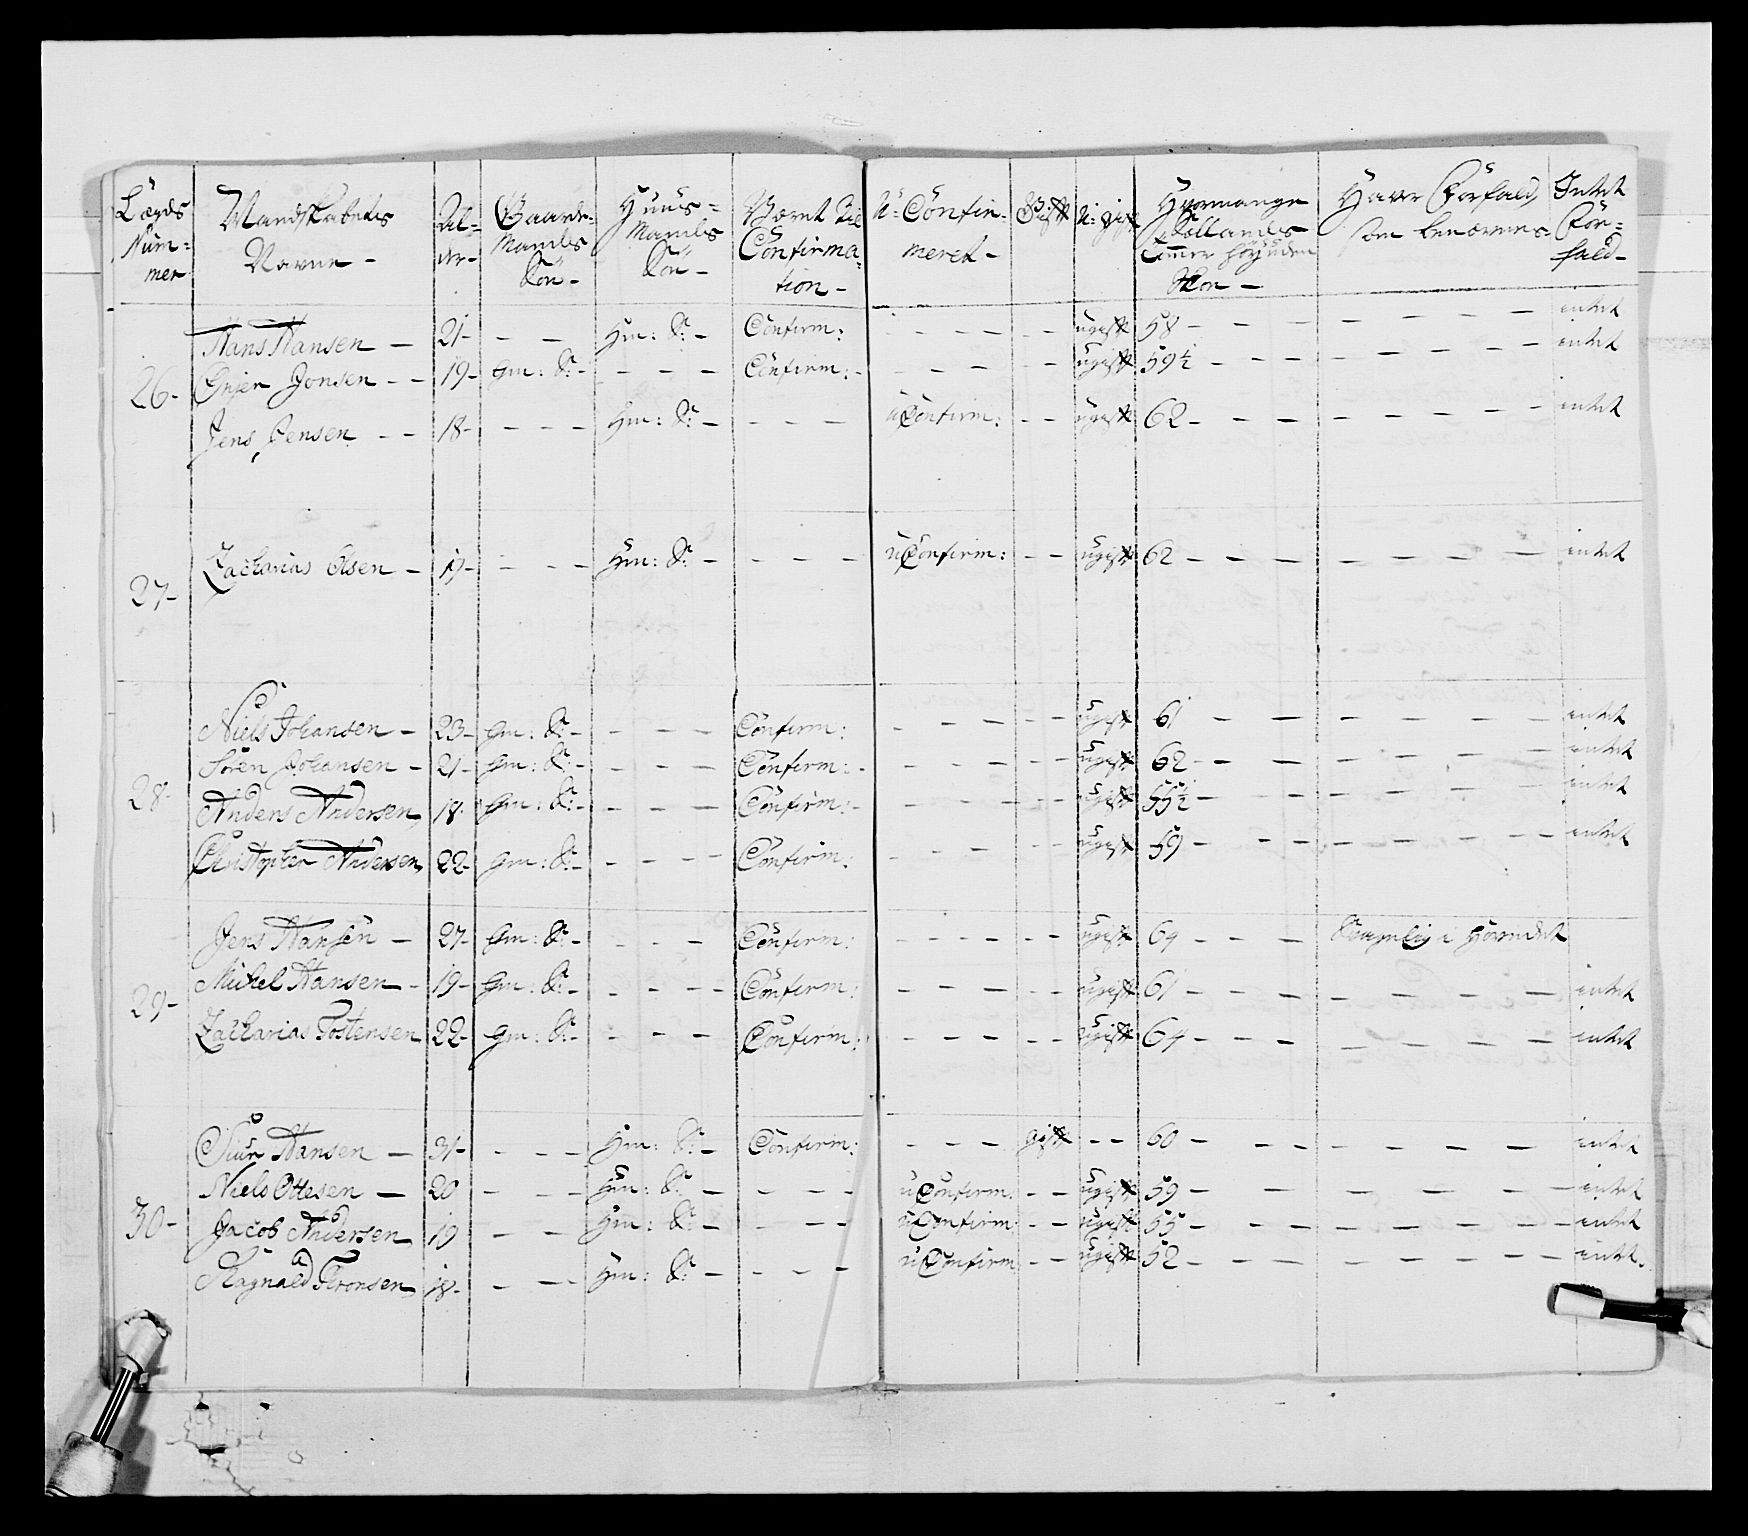 Lægds Num-mer | Mandskabets Navne - | Al-der- | Gaard-Mands Sön- | Huus-Mands Sön- | Været til Confirma-tion- | U-Confir-meret- | Gift | U-gift | Hvormange Sællands Tommer höy uden Skoe - | Have Forfald, som benævnes- | Intet For-fald-
26- | Hans Hansen - | 21- | - - | Hm: S:- | Confirm: | - - - - | - - | ugift | 58 - - - - | - - - - | intet
Jonsen - - | 19- | Gm: S:- | - - - | Confirm:- | - - - | - - | ugift | 59½ - - - | - - - - | intet
Jens Jensen - - | 18- | - - - | Hm: S:- | - - - | uConfirm: | - - | ugift | 62- - - - | - - - - - | intet
27- | Zacharias Olsen - | 19- | - - - | Hm: S:- | - - - | uConfirm: | - - | ugift | 62 - - - | - - - - - | intet
28- | Niels Johansen - | 23- | Gm: S:- | - - - | Confirm: | - - - - | - - | ugift | 61 - - | - - - - - | intet
Sören Johansen - | 21- | Gm: S:- | - - - | Confirm:- | - - - - | - - | ugift | 62- - - - | - - - - - | intet
Anders Andersen, | 18- | Gm: S:- | - - - | Confirm:- | - - - - | - - | ugift | 55½ - - - | - - - - - | intet
Christopher Andersen, | 22- | Gm: S:- | - - - - | Confirm: | - - - - | - - | ugift | 59 - - - - | - - - - - | intet
29- | Jens Hansen - | 27- | Gm: S:- | - - - - | Confirm: | - - - - | - - | ugift | 64 - - - | i Hovedet
Michel Hansen- | 19- | Gm: S:- | - - - - | Confirm: | - - - - | - - | ugift | 61 - - - - | - - - - - | intet
Zacharias Tostensen | 22- | Gm: S:- | - - - | Confirm: | - - - - | - - | ugift | 64 - - - | - - - - - | intet
30- | Siur Hansen - | 31- | - - - | Hm: S:- | Confirm: | - - - | gift | - - | 60 - - - | - - - - - | intet
Niels Ottesen - | 20 | - - | Hm: S:- | - - - | uConfirm: | - - | ugift | 59 - - - | - - - - - | intet
Jacob Andersen | 19 | - - | Hm: S:- | - - - | uConfirm | - - | ugift | 55- - - - | - - - - - | intet
Ragnald Tronsen | 18- | - - - | Hm: S:- | - - - | uConfirm | - - | ugift | 52- - - - | - - - - - | intet.